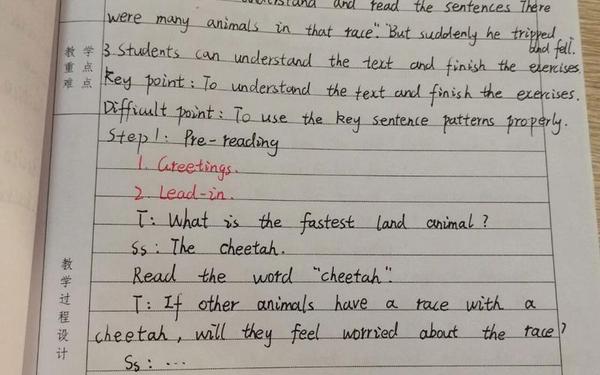 understand and read the sentences There
were many animals in that race." "But suddenly he tripped
and fell.
教学
重点
难点
3. Students can understand the text and finish the exercises.
Key point: To understand the text and finish the exercises.
Difficult point: To use the key sentence patterns properly.
Step 1: Pre-reading
1. Greetings.
2. Lead-in.
T: What is the fastest land animal?
Ss: The cheetah.
教学过程设计
Read the word "cheetah".
T: If other animals have a race with a
cheetah, will they feel worried about the race?
Ss: ...